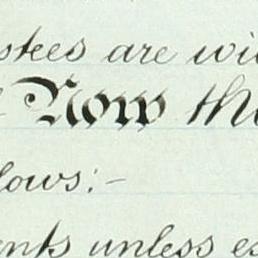 stees are wi
Now th
lows:-
ents unless es